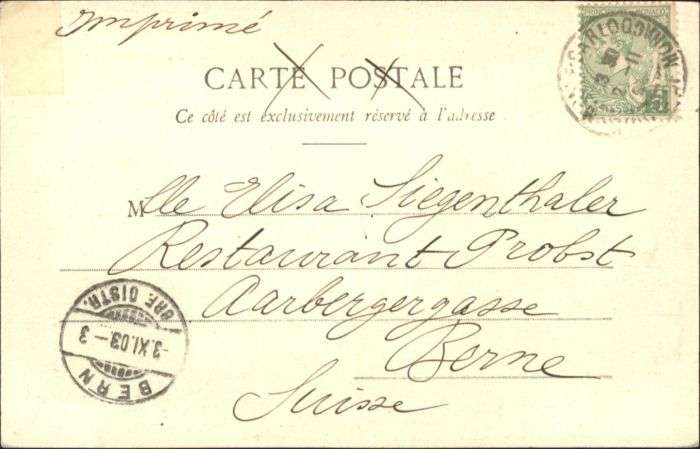 Imprimé
CARTE POSTALE
Ce côté est exclusivement réservé à l'adresse
Mlle Elisa Siegenthaler
Restaurant Probst
Aarbergergasse
Berne
Suisse
BERN
-3.XI.03-3
BRE DISTR.
MONACO
5